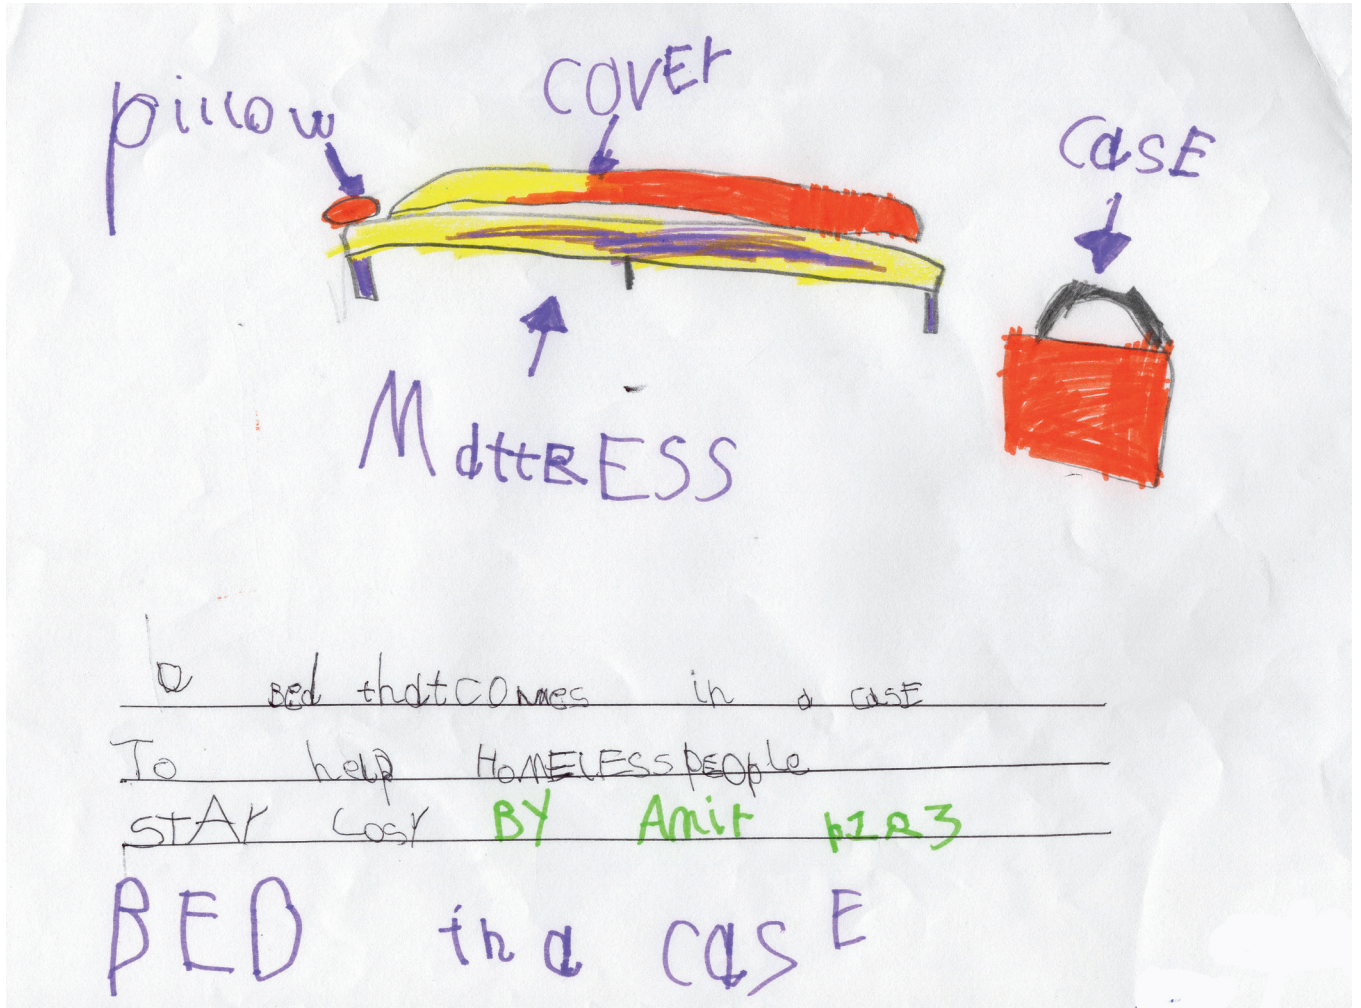 pillow
COVEr
CasE
MattRESS
a BEd that COmes in a casE
To help HOMELESS pEOple
stAy cosy BY Amir p1R3
BED in a casE